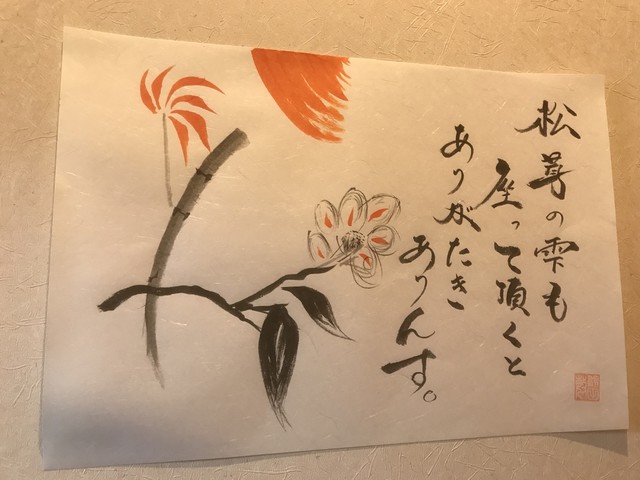 松茸の雫も
座って頂くと
ありがたき
ありんす。